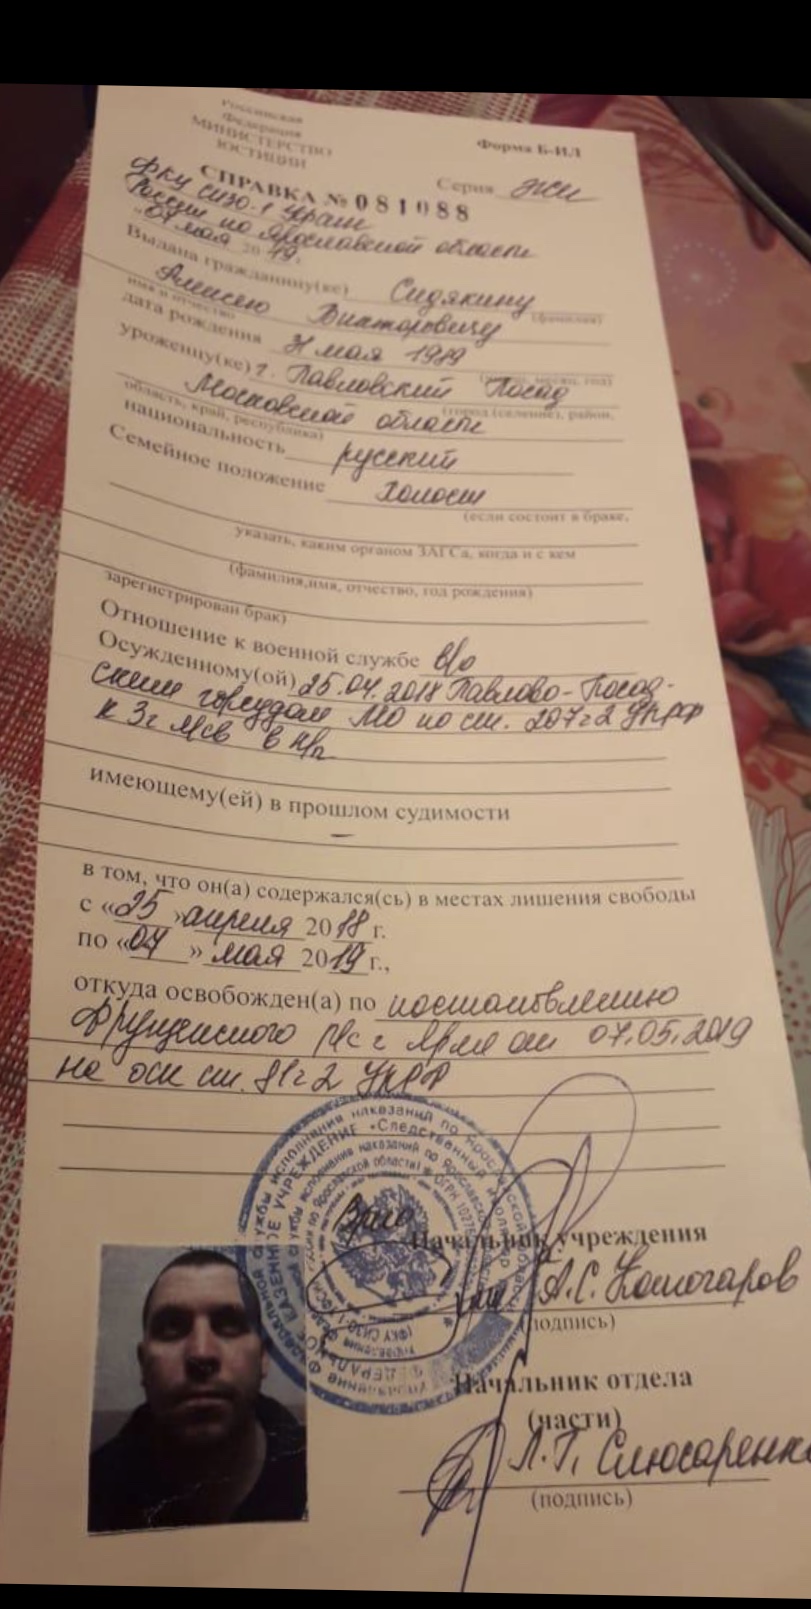 Российская
Федерация
МИНИСТЕРСТВО
ЮСТИЦИИ
Форма Б-ИЛ
Серия ЯКИ
СПРАВКА № 081088
ФКУ СИЗО-1 УФСИН
России по Ярославской области
"07 мая 2019,
Выдана гражданину(ке) Сидякину
(фамилия)
Алексею Викторовичу
имя и отчество
дата рождения мая 1989
уроженцу(ке) г. Павловский Посад
(город (селение), район,
Московской области
область, край, республика)
национальность русский
Семейное положение холост
(если состоит в браке,
указать, каким органом ЗАГСа, когда и с кем
(фамилия,имя, отчество, год рождения)
зарегистрирован брак)
Отношение к военной службе в/о
Осужденному(ой) 25.04.2018 Павлово-Посад-
ским горсудом МО по ст. 207ч2 УКРФ
к 3г в к/п
имеющему(ей) в прошлом судимости
–
в том, что он(а) содержался(сь) в местах лишения свободы
с «25 »апреля 2018 г.
по «07 » мая 2019 г.,
откуда освобожден(а) по постановлению
Фрунзенского р/с г Ярсл от 07.05.2019
на осн ст. 81ч2 УКРФ
Врио
Начальник учреждения
А.С. Комогаров
(подпись)
Начальник отдела
(части)
Л.Г. Слюсаренко
(подпись)